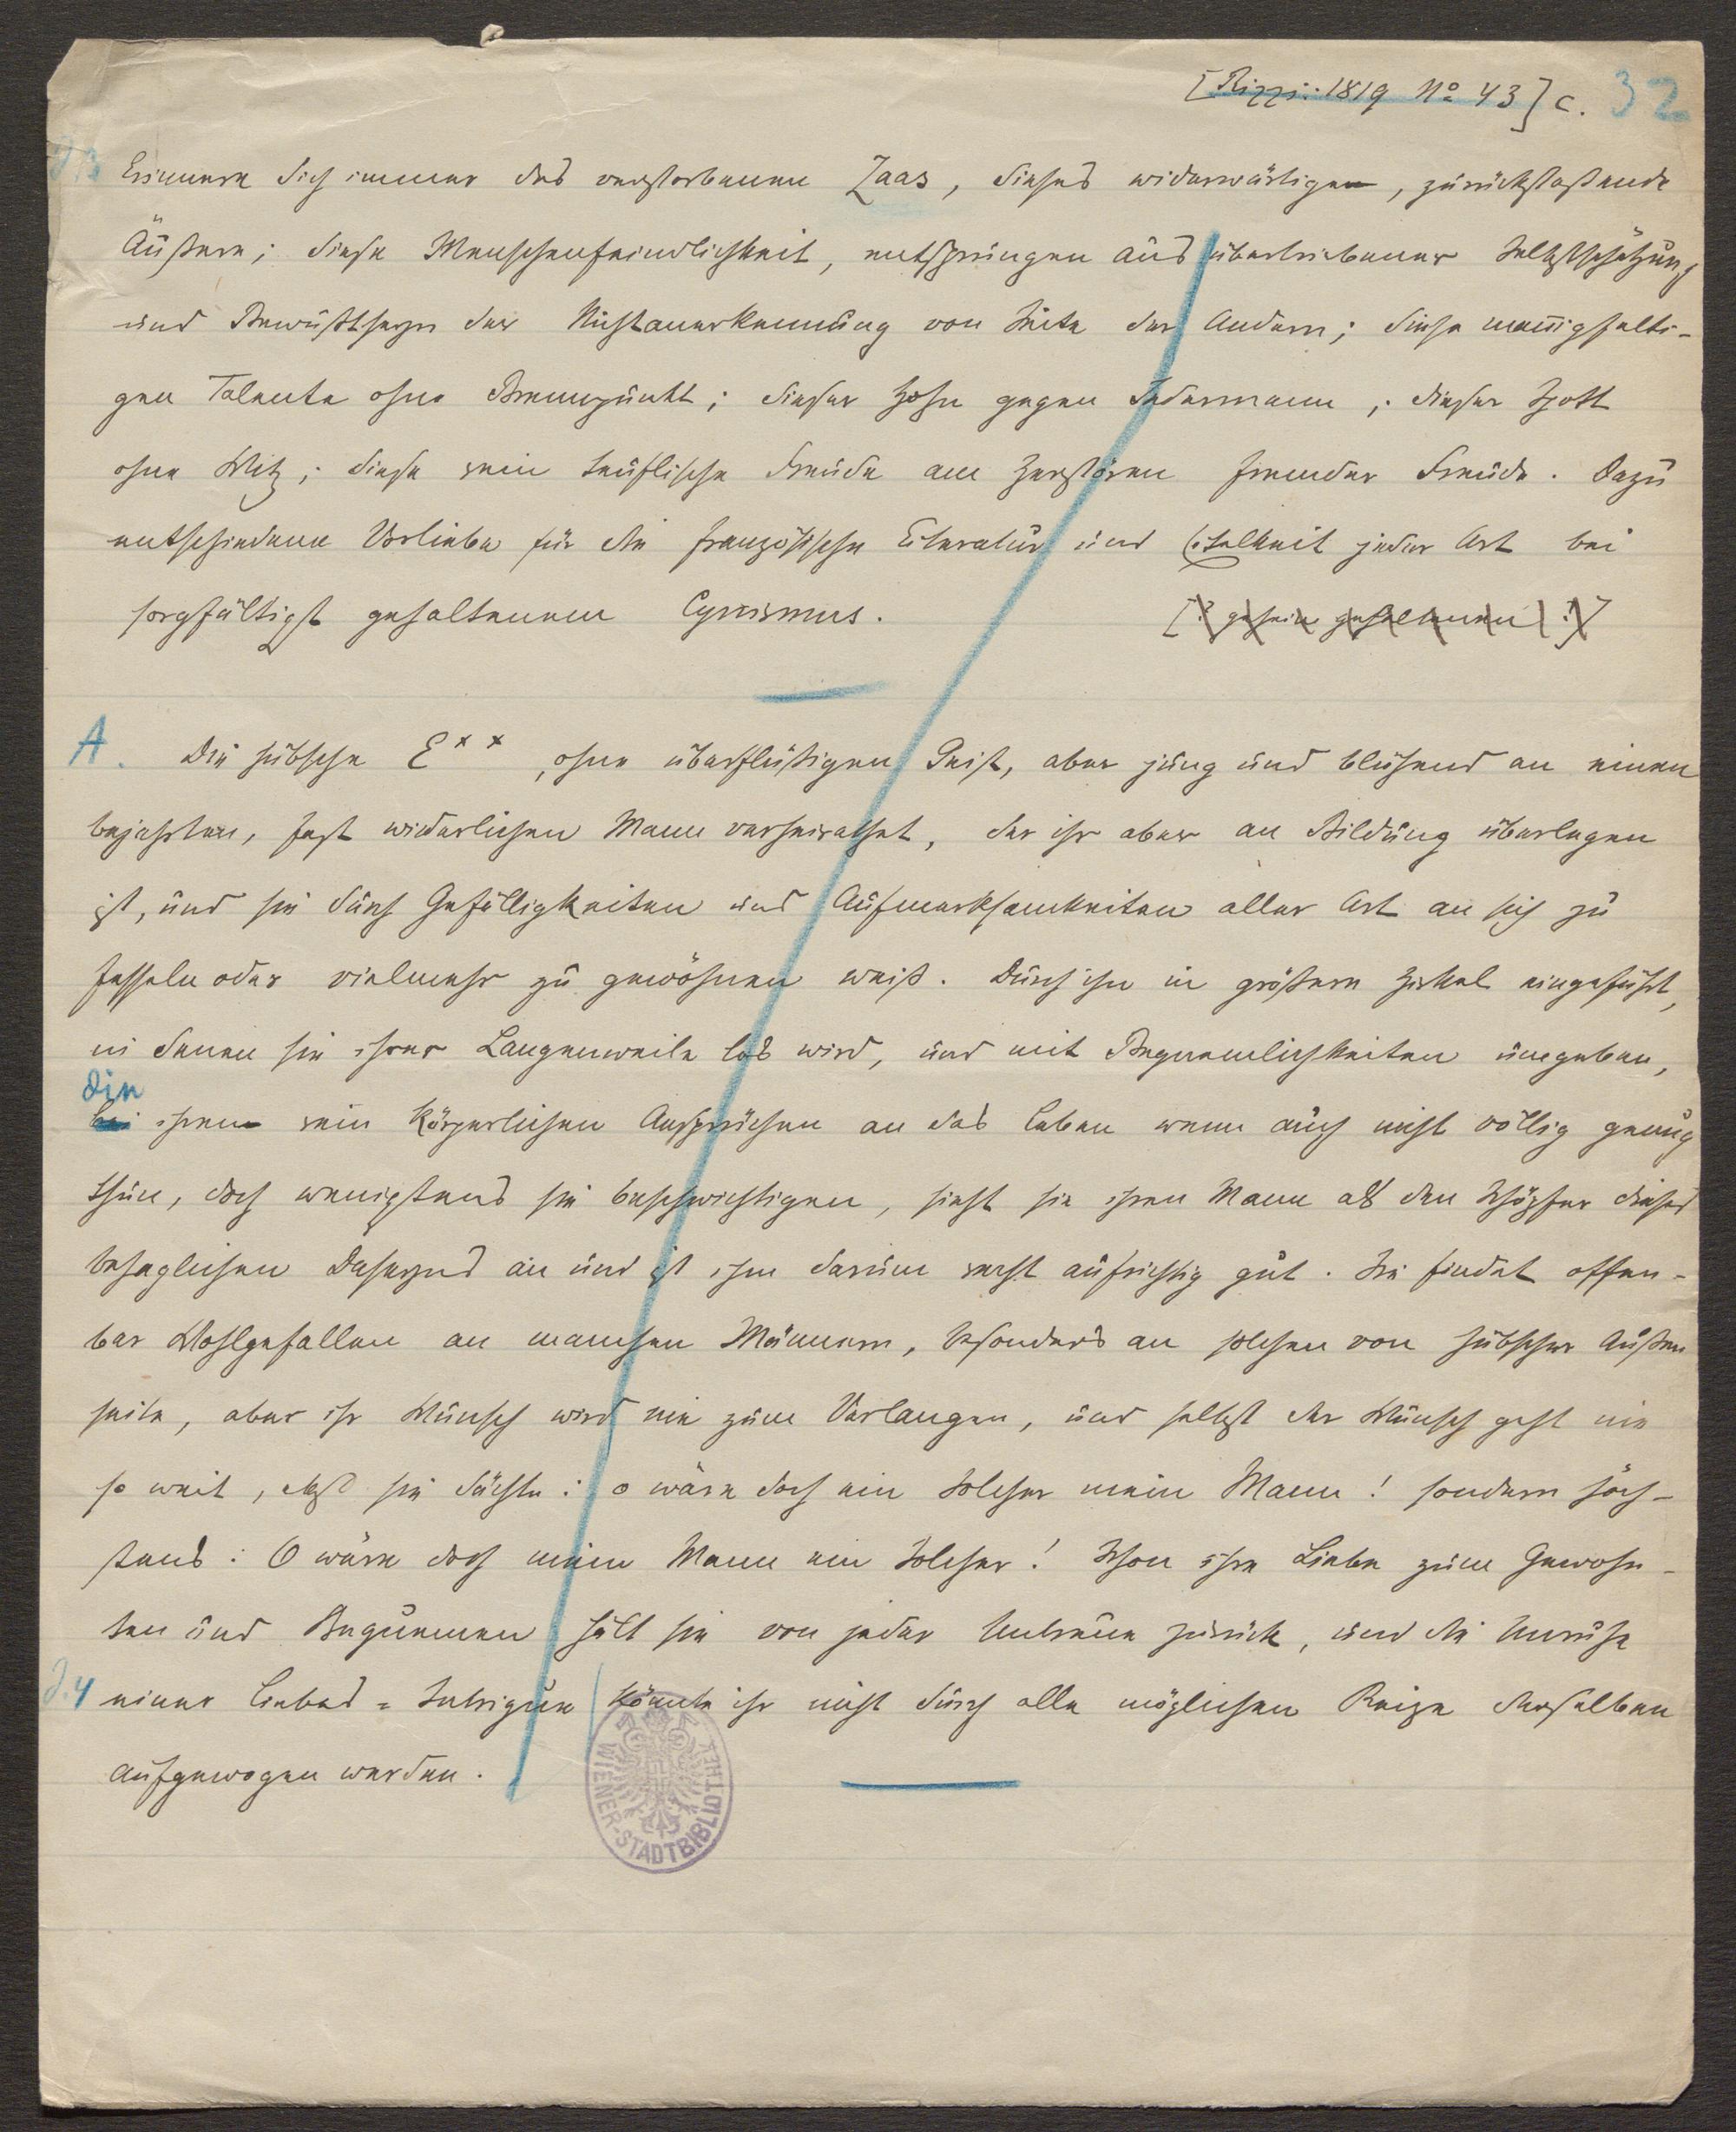 [Rizzi: 1819 No 43] c. 32
J. 3 Erinnere dich immer des verstorbenen Zaas, dieses widerwärtige, zurückstoßende
Äußere; diese Menschenfeindlichkeit, entsprungen aus übertriebener Selbstschätzung
und Bewußtseyn der Nichtanerkennung von Seite der Andern; diese mannigfalti-
gen Talente ohne Brennpunkt; dieser Hohn gegen Jedermann; dieser Spott
ohne Witz; diese rein teuflische Freude am Zerstören fremder Freude. Dazu
entschiedene Vorliebe für die französische Literatur und Eitelkeit jeder Art bei
sorgfältigst gehaltenem Cynismus.
A. Die hübsche E**, ohne überflüßigen Geist, aber jung und blühend an einen
bejahrten, fast widerlichen Mann verheirathet, der ihr aber an Bildung überlegen
ist, und sie durch Gefälligkeiten und Aufmerksamkeiten aller Art an sich zu
fesseln oder vielmehr zu gewöhnen weiß. Durch ihn in größere Zirkel eingeführt,
in denen sie ihrer Langenweile los wird, und mit Bequemlichkeiten umgeben,
die
bei ihren rein körperlichen Ansprüchen an das Leben wenn auch nicht völlig genug
thun, doch wenigstens sie beschwichtigen, sieht sie ihren Mann als den Schöpfer dieses
behaglichen Daseyns an und ist ihm darum recht aufrichtig gut. Sie findet offen-
bar Wohlgefallen an manchen Männern, besonders an solchen von hübscher Außen
seite, aber ihr Wunsch wird nie zum Verlangen, und selbst der Wunsch geht nie
so weit, daß sie dächte: o wäre doch ein Solcher mein Mann! sondern höch-
stens: O wäre doch mein Mann ein Solcher! Schon ihre Liebe zum Gewohn-
ten und Bequemen hält sie von jeder Untreue zurück, und die Unruhe
J. 4 einer Liebes=Intrigue könnte ihr nicht durch alle möglichen Reize derselben
aufgewogen werden.
WIENER-STADTBIBLIOTHEK